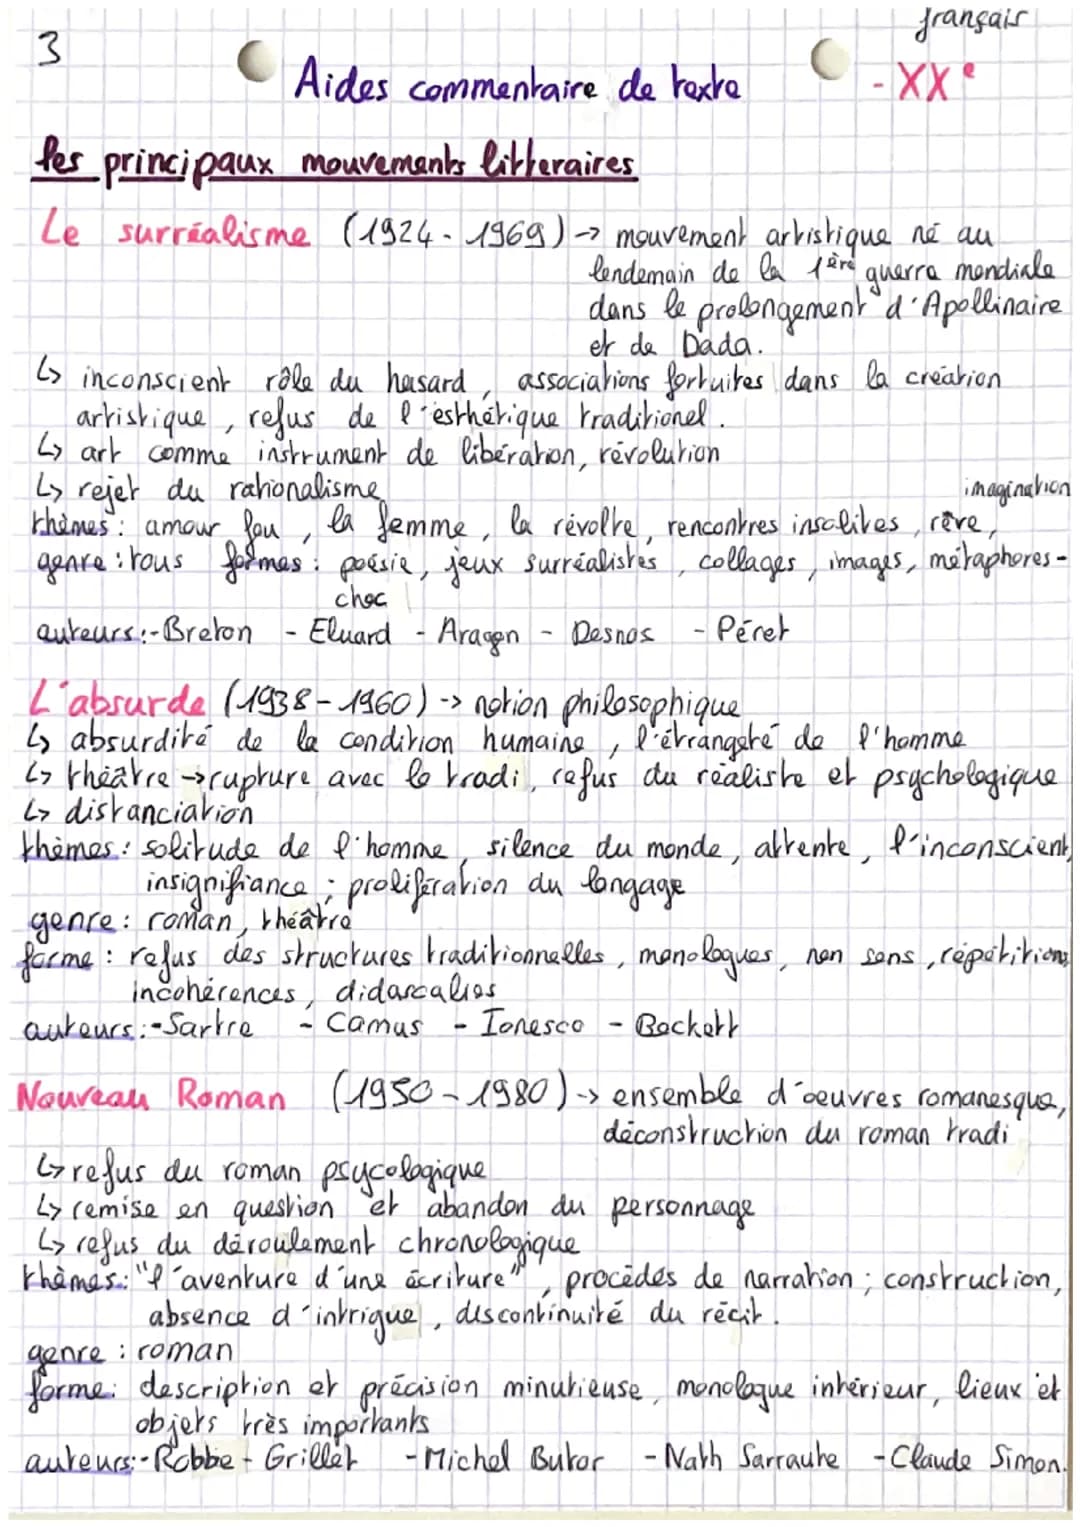 français
3
Aides commentaire de texte - XXe
Les principaux mouvements litteraires
Le surréalisme (1924 - 1969) → mouvement artistique né au
lendemain de la 1ère guerre mondiale
dans le prolongement d'Apollinaire
et de Dada.
↳ inconscient rôle du hasard, associations fortuites dans la création
artistique, refus de l'esthétique traditionel.
↳ art comme instrument de libération, révolution
↳ rejet du rationalisme
imagination
thèmes: amour fou, la femme, la révolte, rencontres insolites, rêve,
genre: tous formes: poésie, jeux surréalistes, collages, images, métaphores-
choc
auteurs: - Breton - Eluard - Aragon - Desnos - Péret
L'absurde (1938 - 1960) → notion philosophique
↳ absurdité de la condition humaine, l'étrangeté de l'homme
↳ théâtre → rupture avec le tradi, refus du réaliste et psychologique
↳ distanciation
thèmes: solitude de l'homme, silence du monde, attente, l'inconscient,
insignifiance; prolifération du langage
genre: roman, théâtre
forme: refus des structures traditionnelles, monologues, non sens, répétitions,
incohérences, didascalies
auteurs: - Sartre - Camus - Ionesco - Beckett
Nouveau Roman (1950 - 1980) → ensemble d'oeuvres romanesque,
déconstruction du roman tradi
↳ refus du roman psycologique
↳ remise en question et abandon du personnage
↳ refus du déroulement chronologique
thèmes: "l'aventure d'une écriture", procédés de narration; construction,
absence d'intrigue, discontinuité du récit.
genre: roman
forme: description et précision minutieuse, monologue intérieur, lieux et
objets très importants
auteurs: - Robbe - Grillet - Michel Butor - Nath Sarraute - Claude Simon.